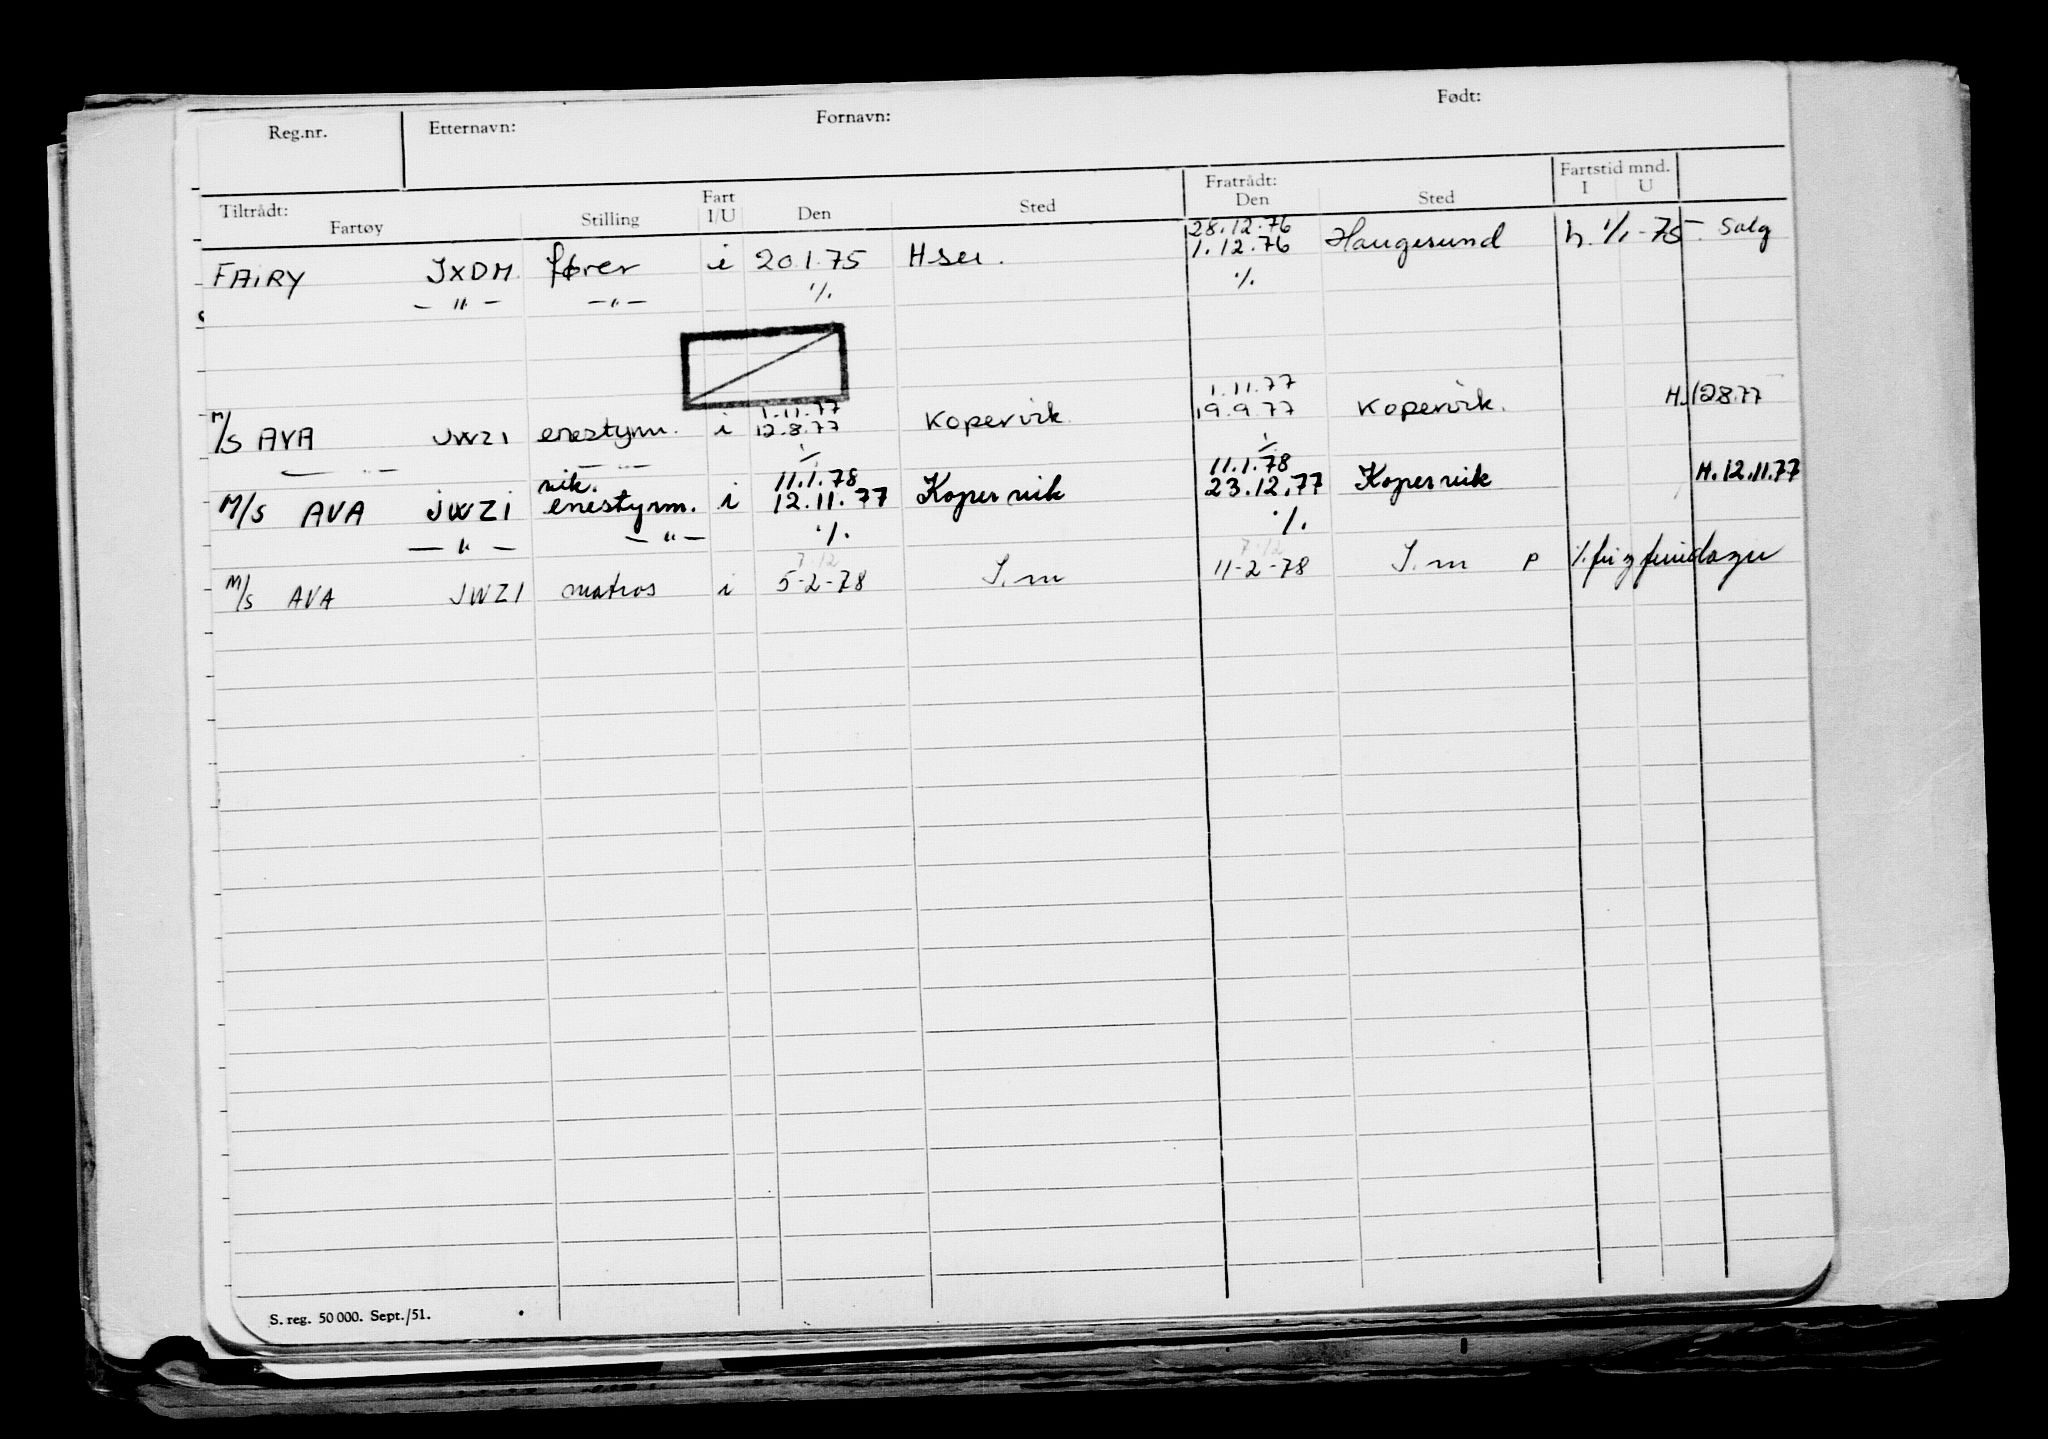 Reg.nr. Etternavn: Fornavn: Født:
Tiltrådt: Fratrådt: Fartstid mnd.
Fartøy Stilling Fart I/U Den Sted Den Sted I U
28.12.76
FAIRY JXDM fører i 20.1.75 Hser. 1.12.76 Haugesund h. 1/1-75 - Salg
— " — — " — % %
1.11.77 1.11.77
M/S AVA JWZI enestyrm. i 12.8.77 Kopervik 19.9.77 Kopervik. H. 12877
— " — — " — % %
vik. 11.1.78 11.1.78
M/S AVA JWZI enestyrm. i 12.11.77 Kopervik 23.12.77 Kopervik H.12.11.77
— " — — " — % %
7.12 7.12
M/S AVA JWZI matros i 5-2-78 S.m 11-2-78 S.m P
S. reg. 50 000. Sept./51.